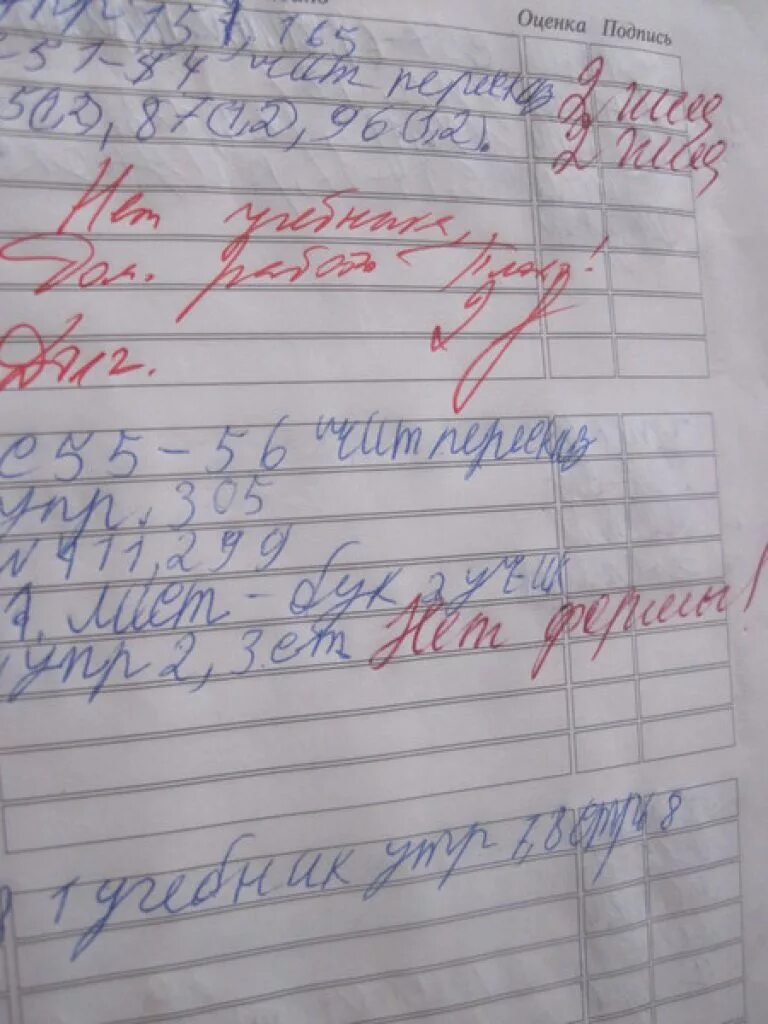 Оценка Подпись
упр 157, 165
с 51-54 чит пересказ 2
5(1,2), 87(1,2), 96(1,2). 2
2
Нет учебника,
Дом. работы - плохо!
2
Долг.
с 55-56 чит пересказ
упр. 305
N 111, 299
лист - бук з уч-ик
упр 2, 3 ст Нет формы!
1 учебник упр 7,8 стр 48